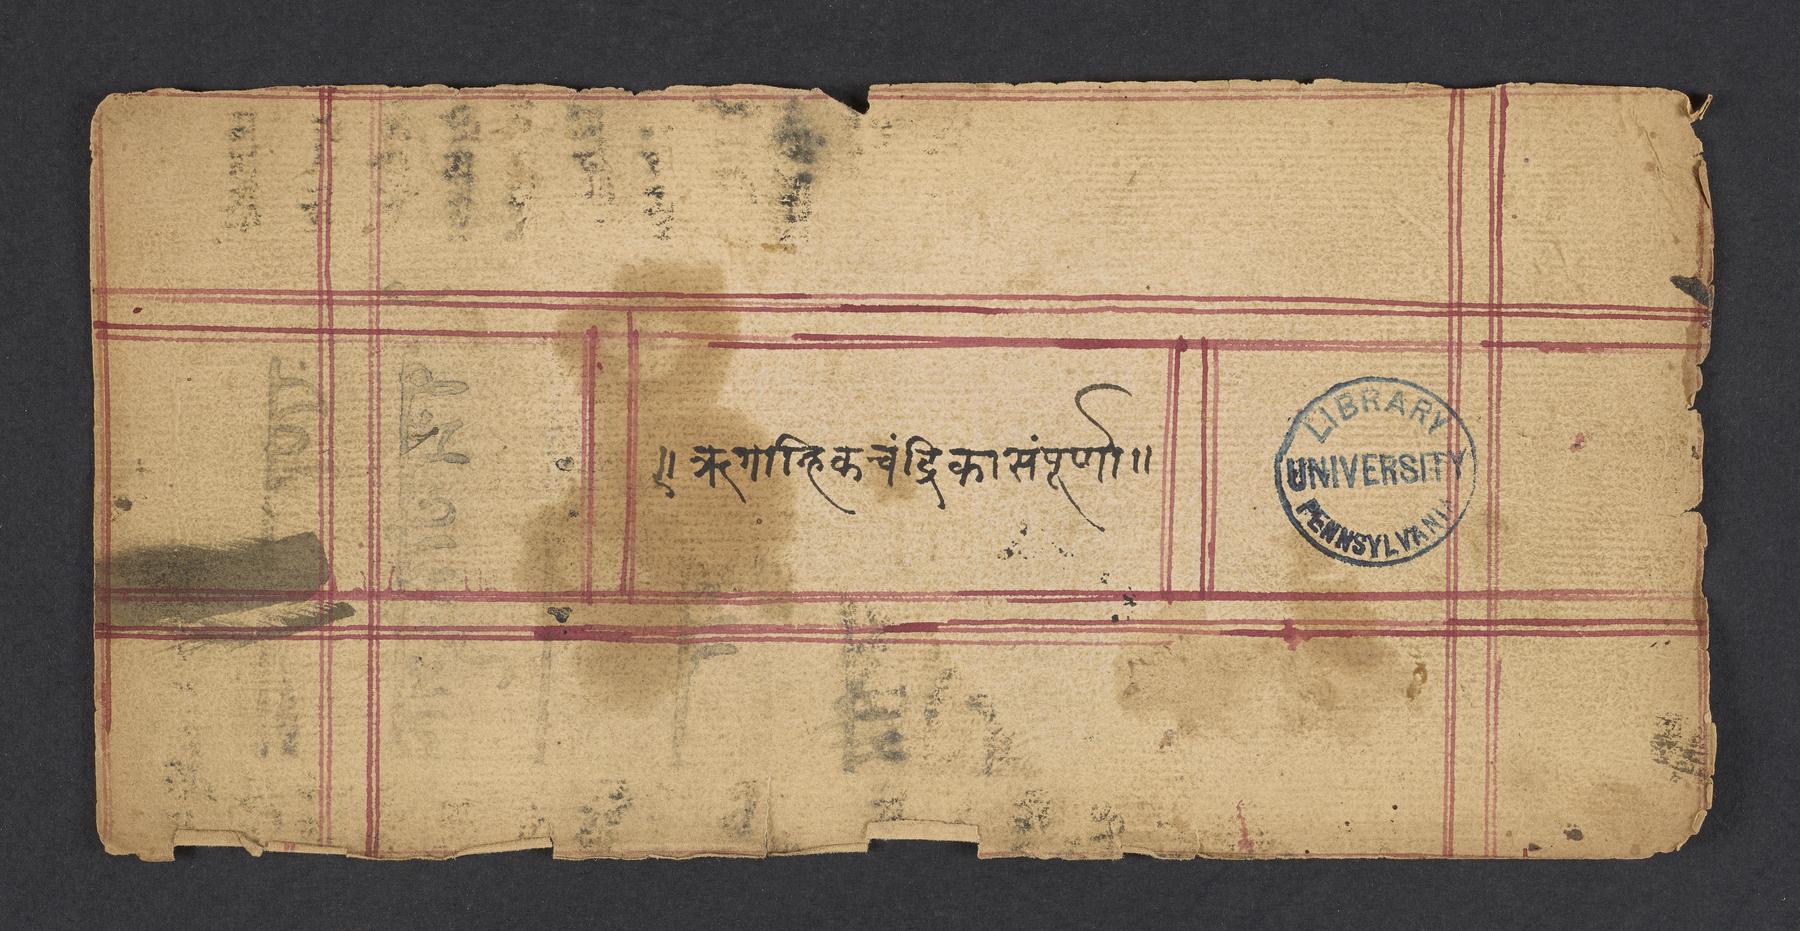 ॥ ऋगाह्निकचंद्रिकासंपूर्णा ॥
LIBRARY
UNIVERSITY
PENNSYLVANIA